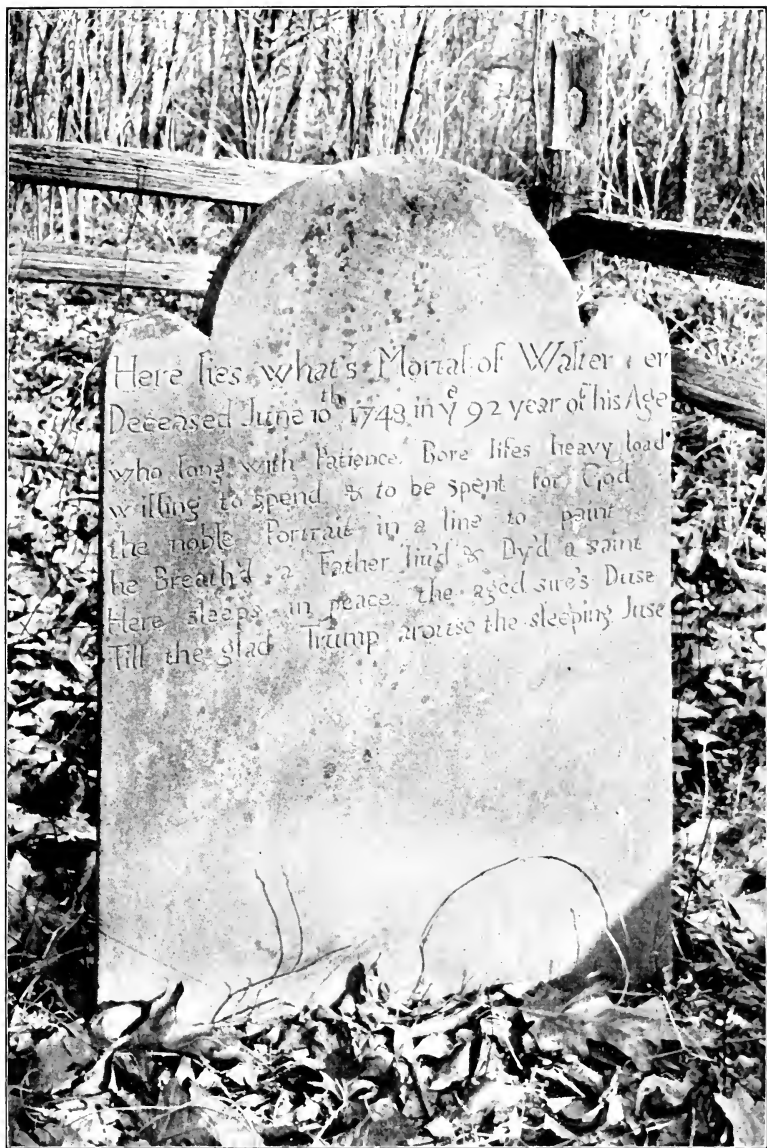 Here lies what's Mortal of Walter er
Deceased June 10th 1748 in ye 92 year of his Age
who long with Patience Bore lifes heavy load
willing to spend & to be spent for God
the noble Portrait in a line to paint
he Breath'd a Father liv'd & Dy'd a saint
Here sleeps in peace the aged sire's Dust
Till the glad Trump arouse the sleeping Just